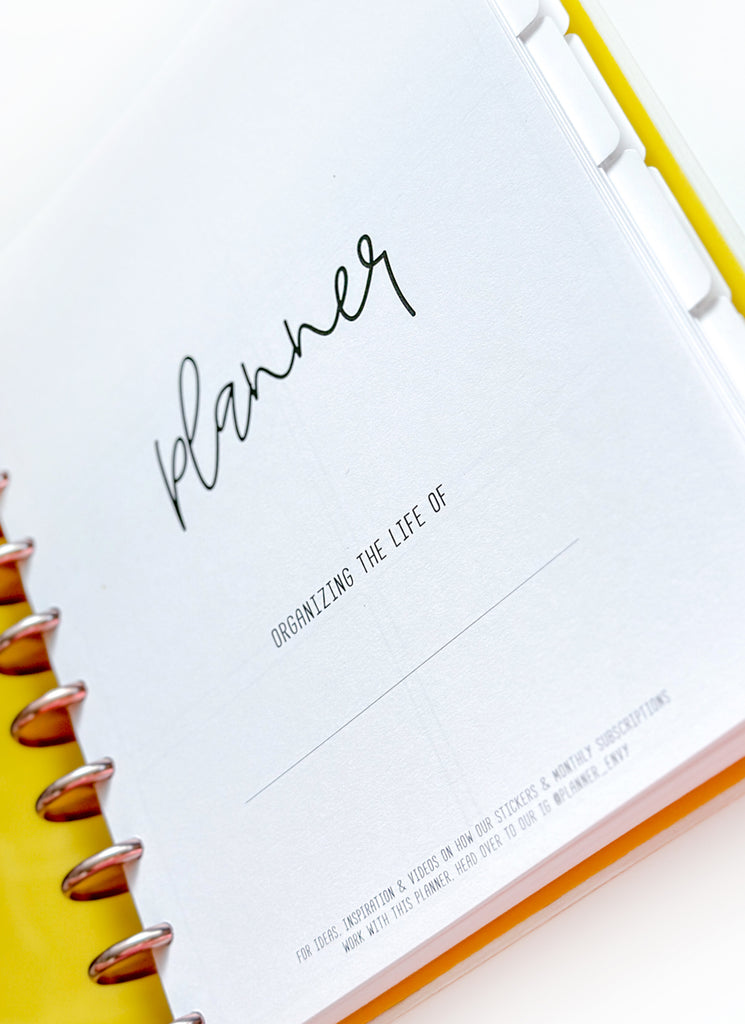 planner
ORGANIZING THE LIFE OF
FOR IDEAS, INSPIRATION & VIDEOS ON HOW OUR STICKERS & MONTHLY SUBSCRIPTIONS
WORK WITH THIS PLANNER, HEAD OVER TO OUR IG @PLANNER_ENVY